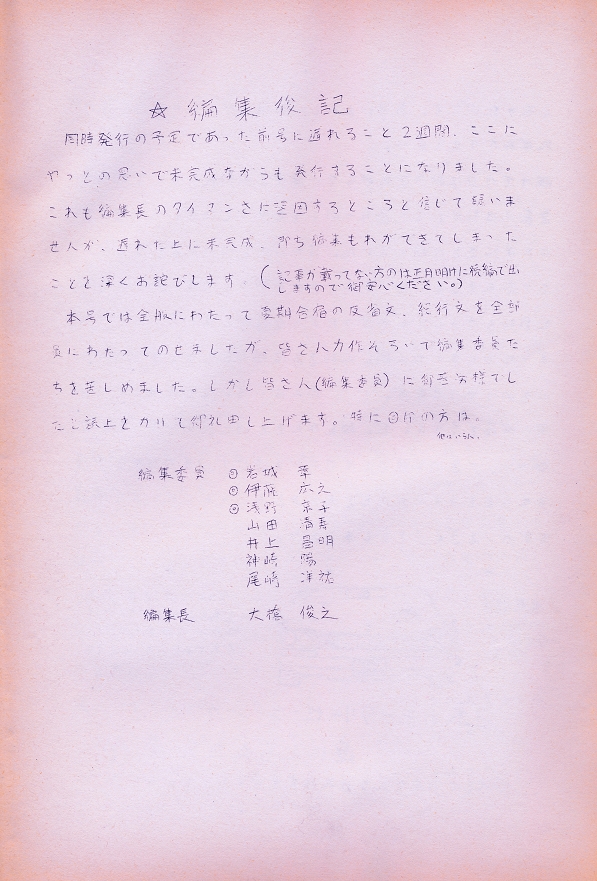 ☆ 編集後記
同時発行の予定であった前号に遅れること2週間、ここに
やっとの思いで未完成ながらも発行することになりました。
これも編集長のタイマンさに起因するところと信じて疑いま
せんが、遅れた上に未完成、即ち編集もれができてしまった
ことを深くお詫びします。(記事が載ってない方のは正月明けに続編で出
しますので御安心ください。)
本号では全般にわたって夏期合宿の反省文、紀行文を全部
員にわたってのせましたが、皆さん力作そろいで編集委員た
ちを苦しめました。しかし皆さん(編集委員)に御苦労様でし
たと誌上をかりて御礼申し上げます。特に◎印の方は。
他はいらん。
編集委員 ◎岩城
◎伊藤 広之
◎浅野 京子
山田 清春
井上 昌明
神崎 陽
尾崎 洋祐
編集長 大橋 俊之